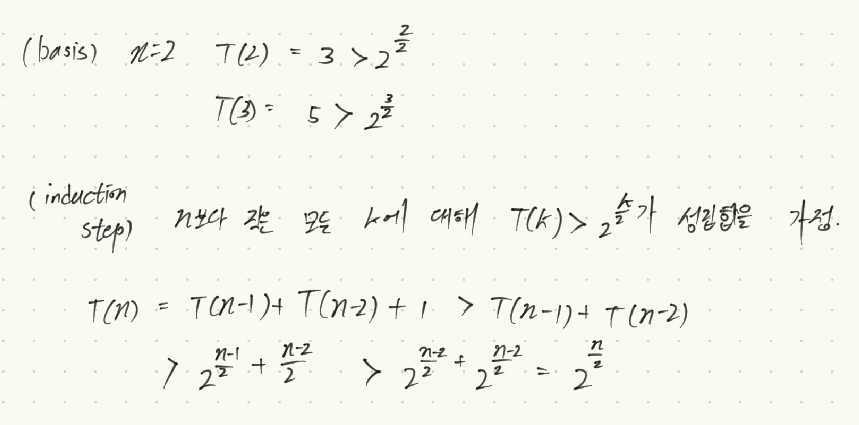 (basis) n=2 T(2) = 3 > 2^{\frac{2}{2}}
T(3) = 5 > 2^{\frac{3}{2}}
(induction
step) n보다 작은 모든 k에 대해 T(k) > 2^{\frac{k}{2}}가 성립함을 가정.
T(n) = T(n-1) + T(n-2) + 1 > T(n-1) + T(n-2)
> 2^{\frac{n-1}{2}} + \frac{n-2}{2} > 2^{\frac{n-2}{2}} + 2^{\frac{n-2}{2}} = 2^{\frac{n}{2}}